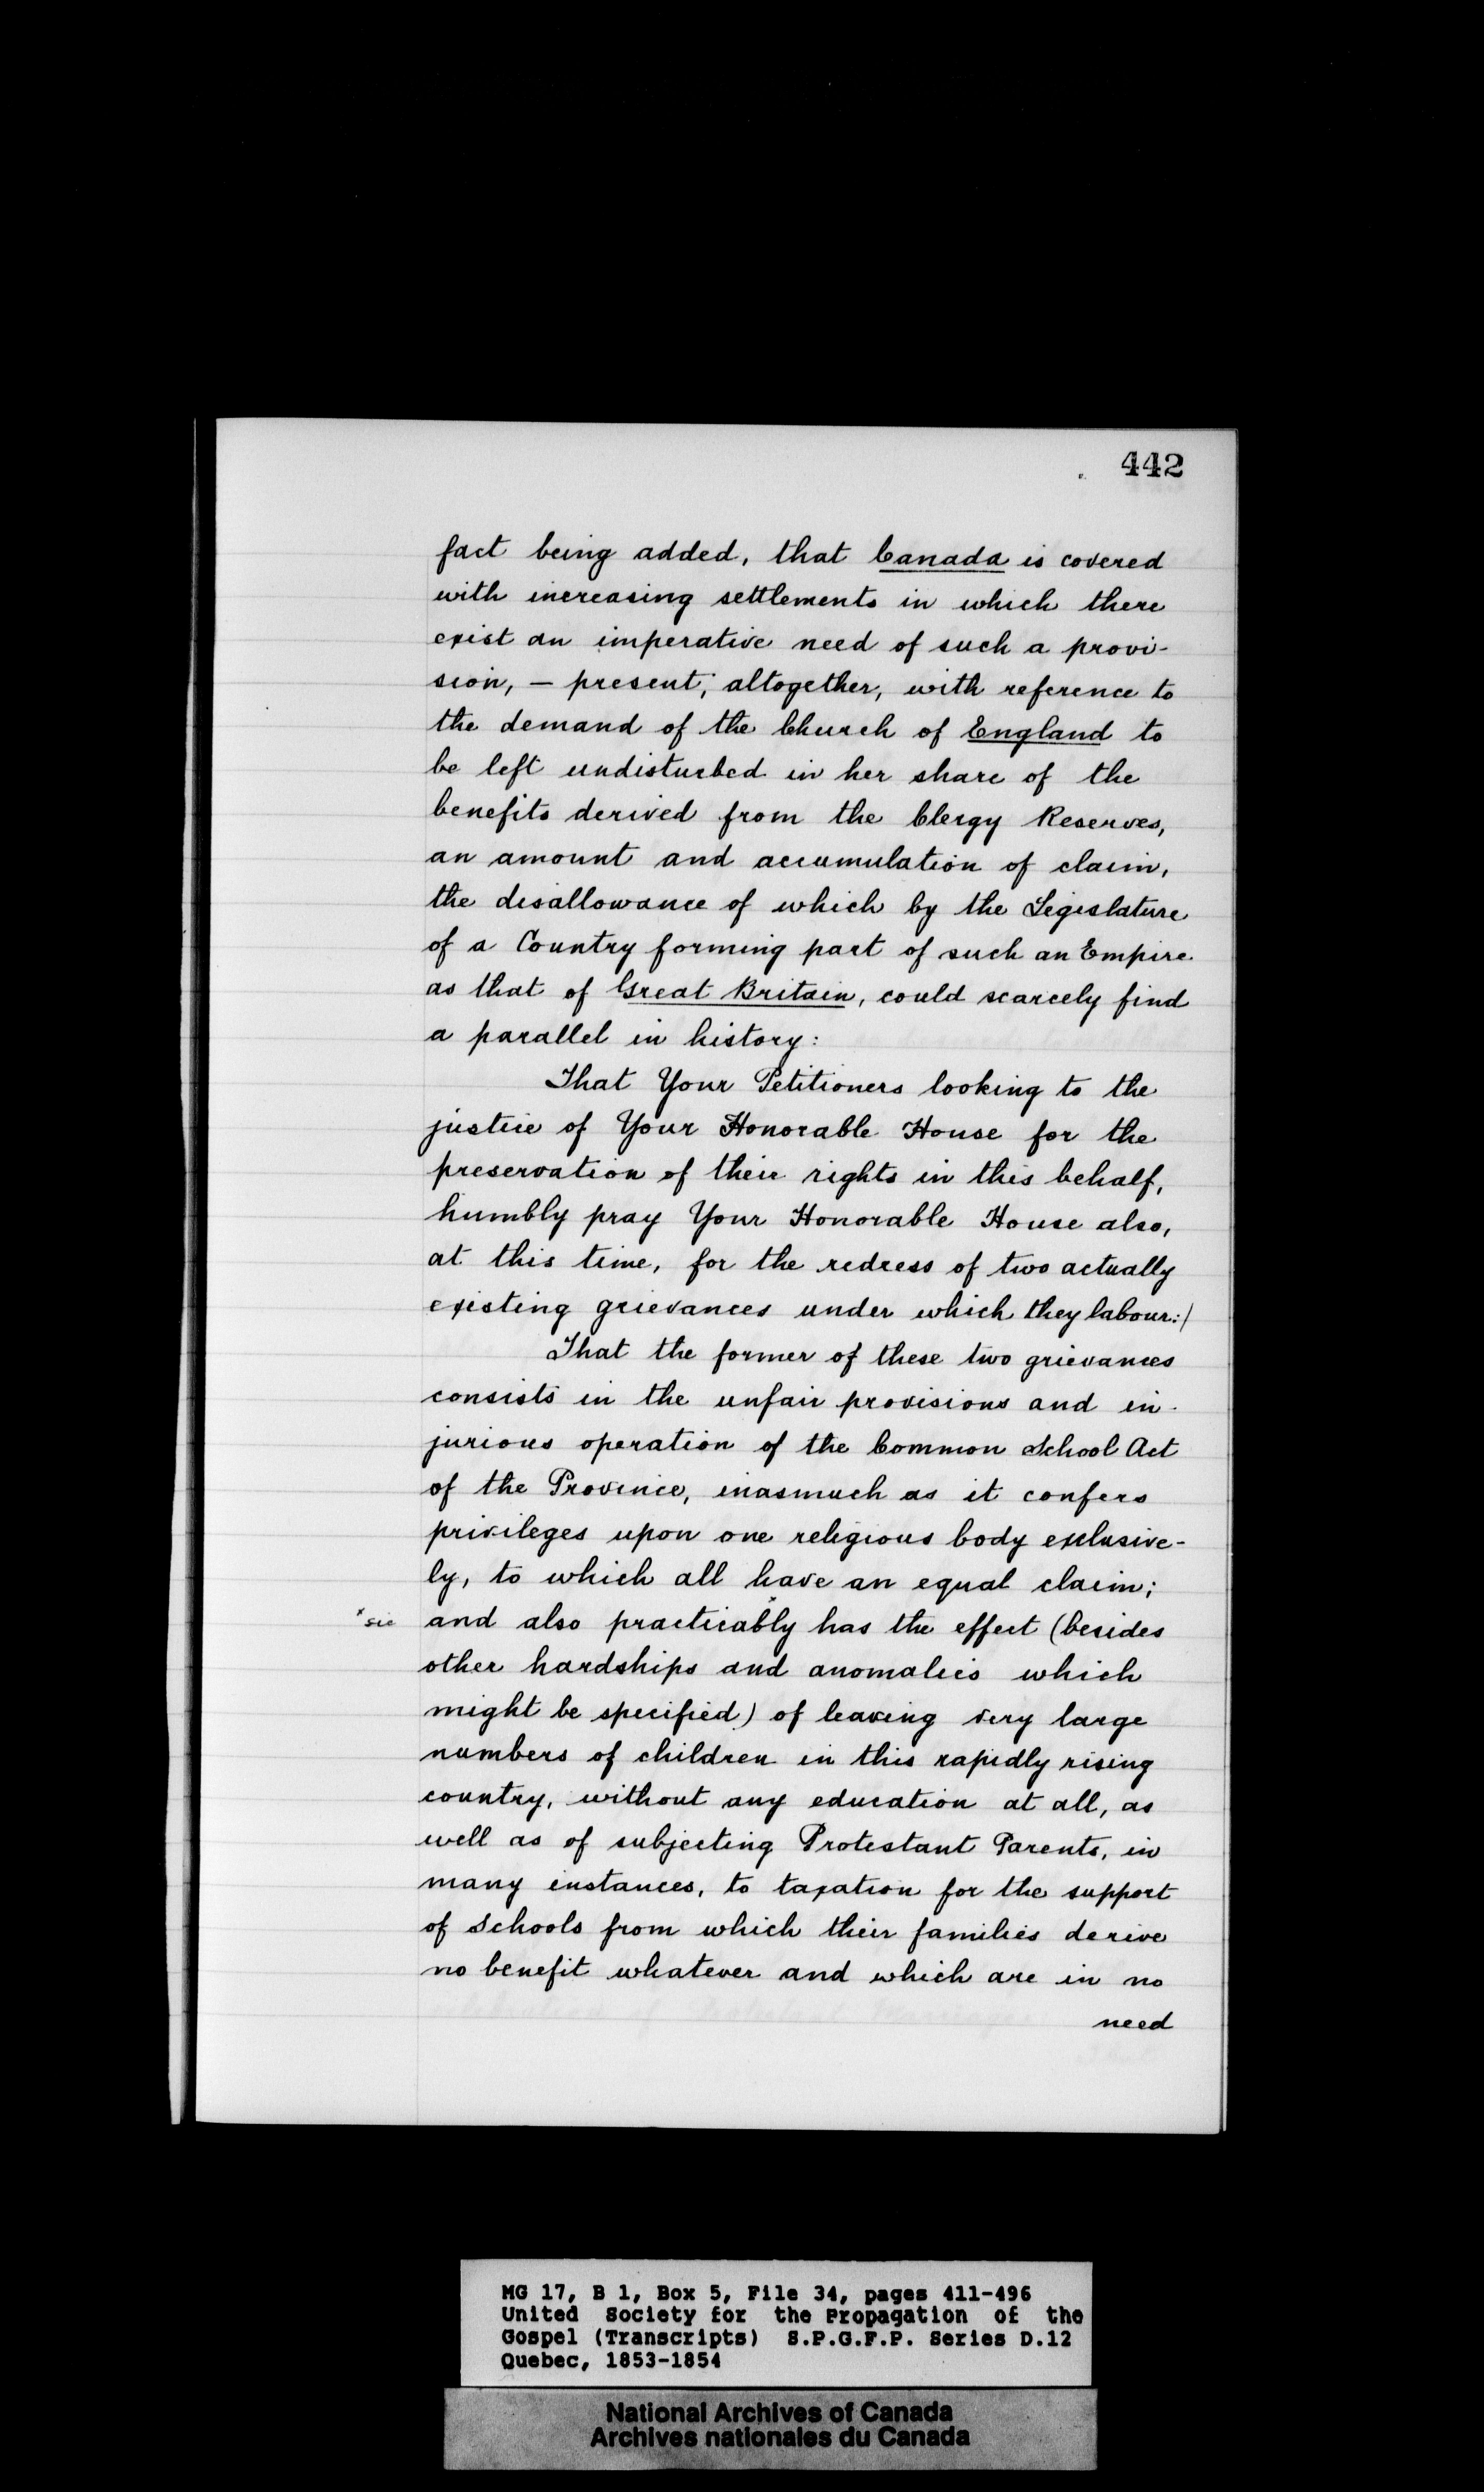 442
fact being added, that Canada is covered
with increasing settlements in which there
exist an imperative need of such a provi-
sion, — present, altogether, with reference to
the demand of the Church of England to
be left undisturbed in her share of the
benefits derived from the Clergy Reserves,
an amount and accumulation of claim,
the disallowance of which by the Legislature
of a Country forming part of such an Empire
as that of Great Britain, could scarcely find
a parallel in history:
That Your Petitioners looking to the
justice of Your Honorable House for the
preservation of their rights in this behalf,
humbly pray Your Honorable House also,
at this time, for the redress of two actually
existing grievances under which they labour:/
That the former of these two grievances
consists in the unfair provisions and in-
jurious operation of the Common School Act
of the Province, inasmuch as it confers
privileges upon one religious body exclusive-
ly, to which all have an equal claim;
x sic and also practicably x has the effect (besides
other hardships and anomalies which
might be specified) of leaving very large
numbers of children in this rapidly rising
country, without any education at all, as
well as of subjecting Protestant Parents, in
many instances, to taxation for the support
of Schools from which their families derive
no benefit whatever and which are in no
need
MG 17, B 1, Box 5, File 34, pages 411-496
United Society for the Propagation of the
Gospel (Transcripts) S.P.G.F.P. Series D.12
Quebec, 1853-1854
National Archives of Canada
Archives nationales du Canada